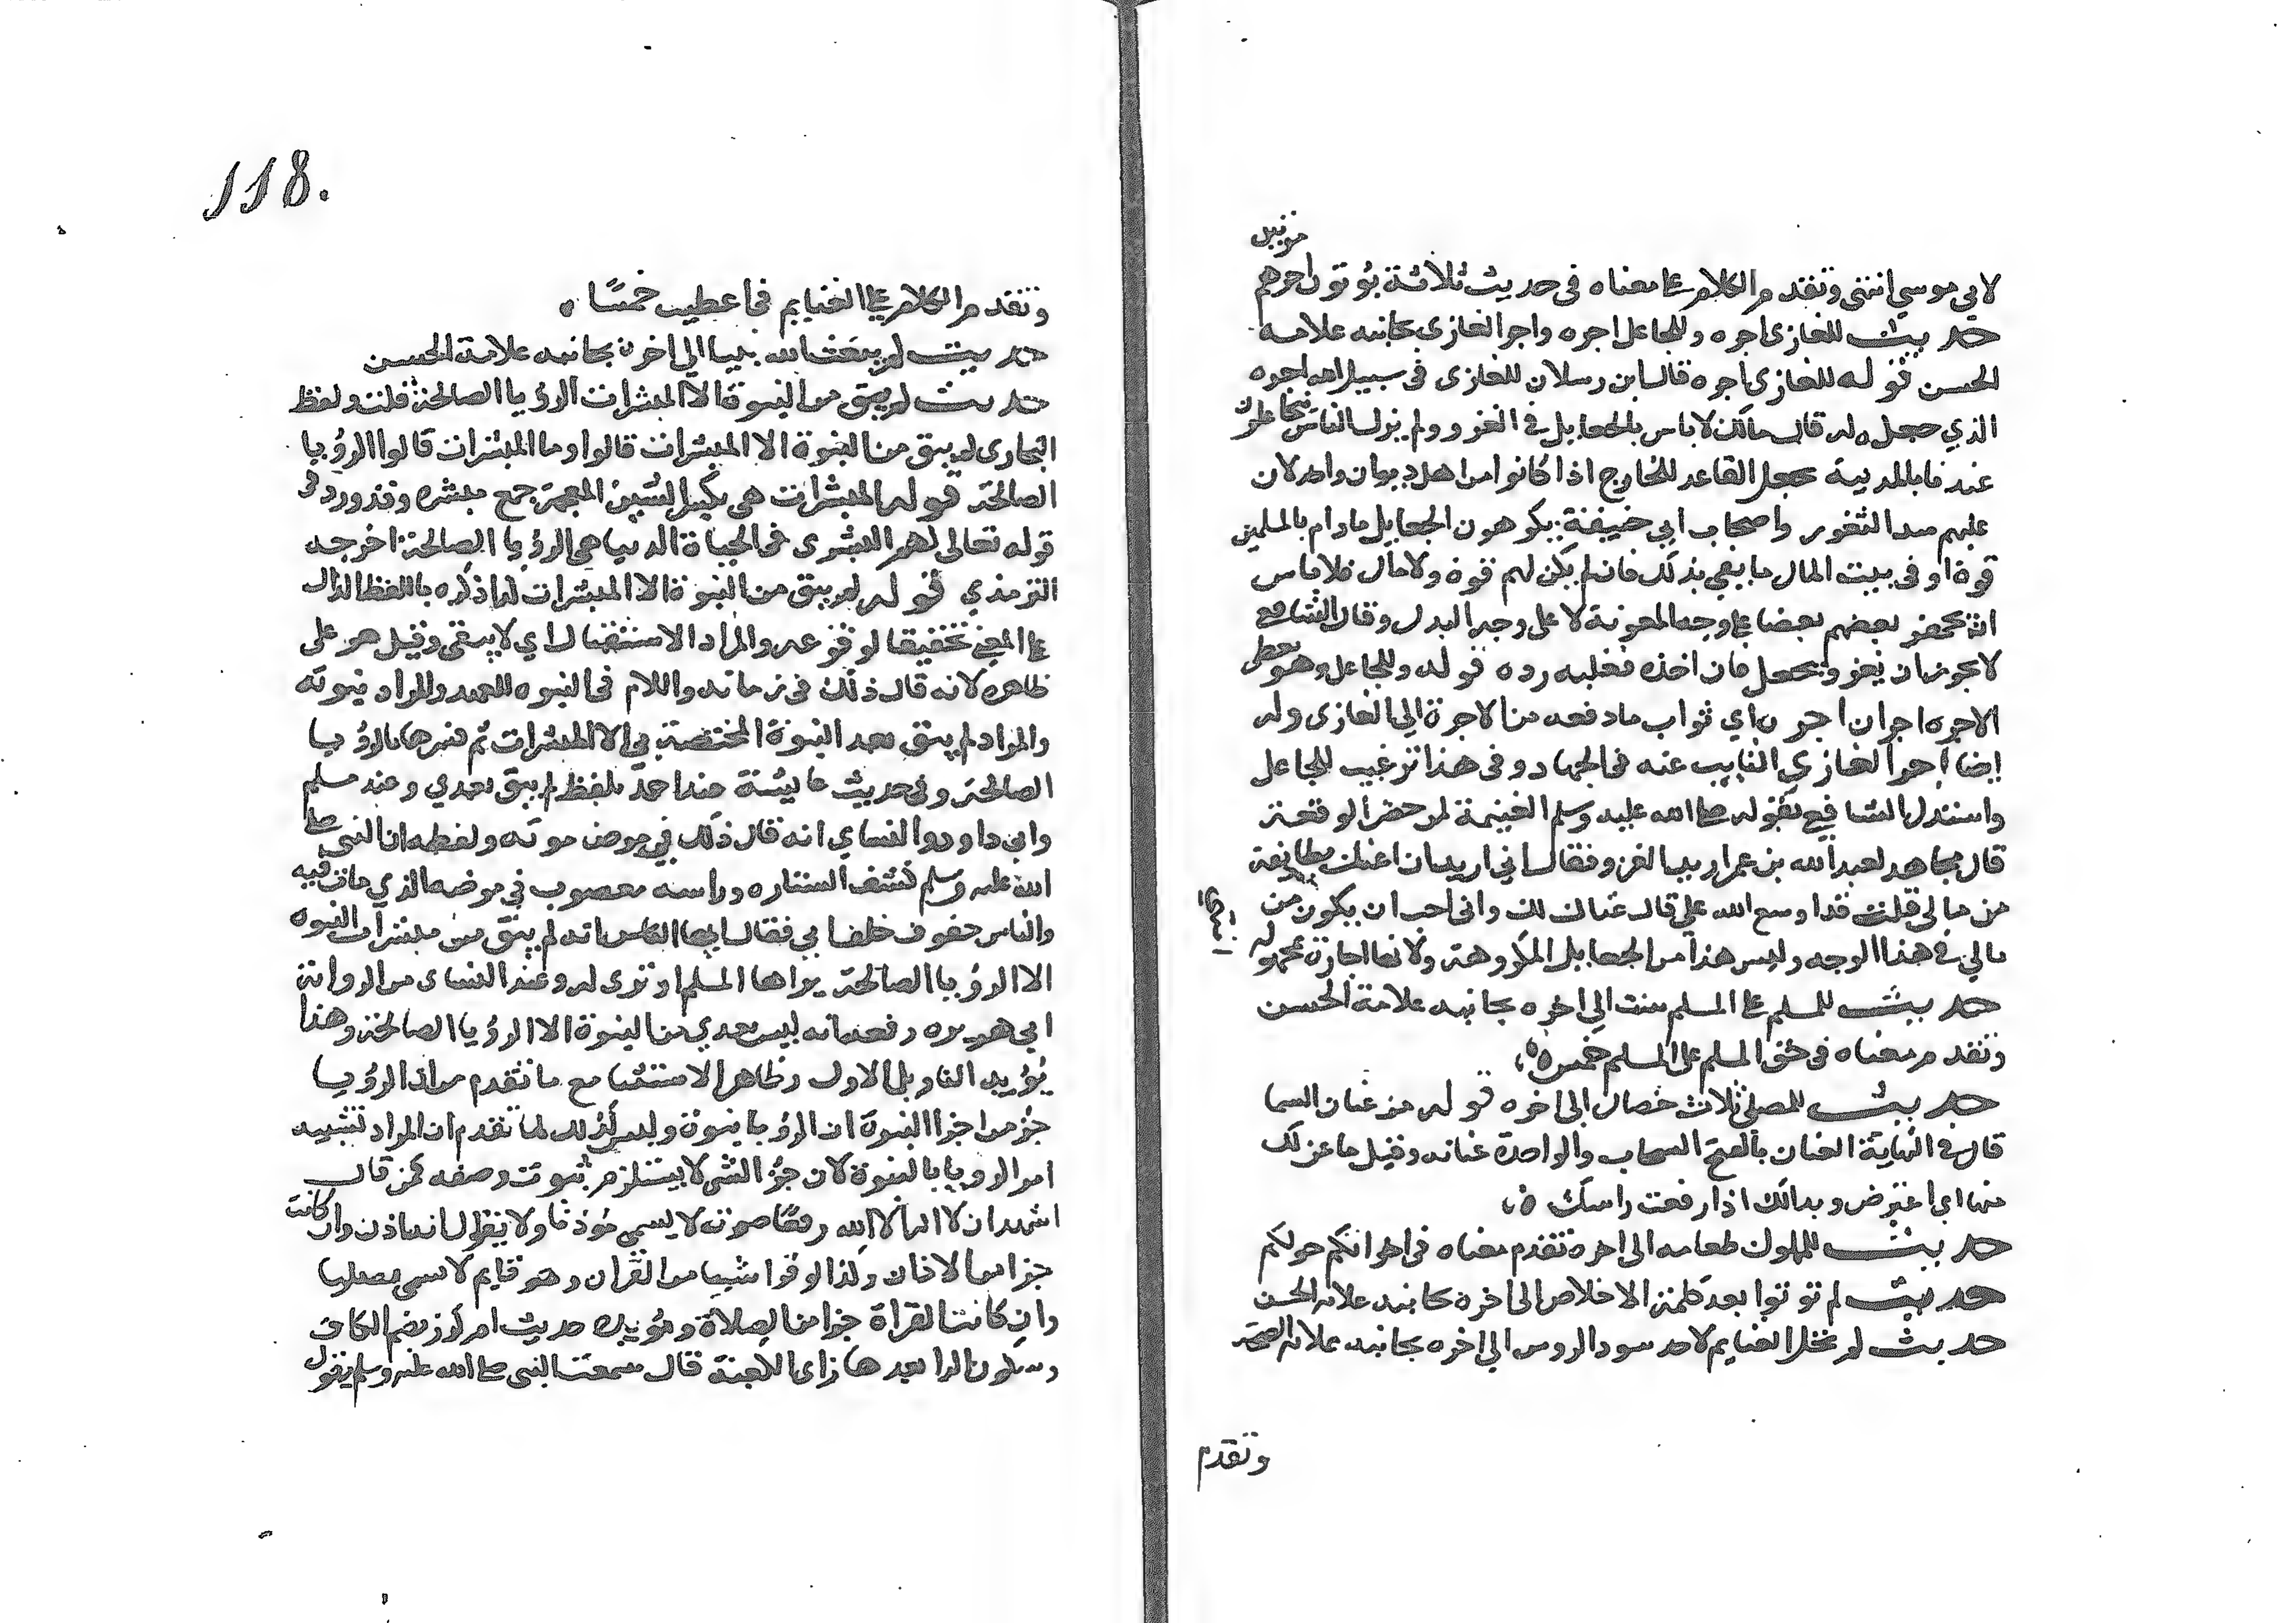 مرتين
لابي موسي انتهى وتقدم الكلام على معناه في حديث ثلاثة يؤتون اجرهم
حديث للغازي اجره وللجاعل اجره واجر الغازي بجانبه علامة
الحسن قوله للغازي اجره قال ابن رسلان للغازي في سبيل الله اجره
الذي جعل له قال مالك لا باس بالجعايل في الغزو ولم يزل الناس يتجاعلون
عندنا بالمدينة يجعل القاعد للخارج اذا كانوا من اهل ديوان واحد لان
عليهم سد الثغور واصحاب ابي حنيفة يكرهون الجعايل مادام بالمسلمين
قوة او في بيت المال ما يفي بذلك فان لم يكن لهم قوة ولا مال فلا باس
ان يجهز بعضهم بعضا على وجه المعونة لا على وجه البدل وقال الشافعي
لا يجوز ان يغزو بجعل فان اخذه فعليه رده قوله وللجاعل وهو معطي
الاجره اجران اجر اي ثواب ما دفعه من الاجرة الي الغازي وله
ايضا اجر الغازي النايب عنه في الجهاد وفي هذا ترغيب للجاعل
واستدل الشافعي بقوله صلى الله عليه وسلم الغنيمة لمن حضر الوقعة
قال مجاهد لعبد الله بن عمر اريد الغزو فقال اني اريد ان اعينك بطايفة
من مالي قلت قد اوسع الله علي قال غناك لك واني احب ان يكون من
مالي في هذا الوجه وليس هذا من الجعايل المكروهة ولا نها اجازة مجهولة
انتهى
حديث للمسلم على المسلم ست الي اخره بجانبه علامة الحسن
وتقدم معناه في حق المسلم على المسلم خمس
حديث للمصلي ثلاث خصال الى اخره قوله من عنان السما
قال في النهاية العنان بالفتح السحاب والواحدة عنانه وقيل ما عن لك
منها اي اعترض وبدالك اذا رفعت راسك
حديث للمملوك طعامه الى اخره تقدم معناه في اخوانكم خولكم
حديث لم تؤتوا بعد كلمة الاخلاص الى اخره بجانبه علامة الحسن
حديث لم تحل الغنايم لاحد سود الروس الي اخره بجانبه علامة الصحة
وتقدم
118.
وتقدم الكلام على الغنايم في اعطيت خمسًا
حديث لم يبعث الله نبيا الي اخره بجانبه علامة الحسن
حديث لم يبق من النبوة الا المبشرات الرؤيا الصالحة قلت ولفظ
البخاري لم يبق من النبوة الا المبشرات قالوا وما المبشرات قال الرؤيا
الصالحة قوله المبشرات هي بكسر الشين المعجمة جمع مبشرة وقد ورد في
قوله تعالى لهم البشرى في الحياة الدنيا هي الرؤيا الصالحة اخرجه
الترمذي قوله لم يبق من النبوة الا المبشرات كذا ذكره باللفظ الدال
على المضي تحقيقا لوقوعه والمراد الاستقبال اي لا يبقى وقيل هو على
ظاهره لانه قال ذلك في زمانه واللام في النبوه للعهد والمراد نبوته
والمراد لم يبق بعد النبوة المختصة بي الا المبشرات ثم فسرها بالرؤيا
الصالحة وفي حديث عائيشة عند احمد بلفظ لم يبق بعدي وعند مسلم
وابي داود والنساي انه قال ذلك في مرض موته ولفظه ان النبي صلى
الله عليه وسلم كشف الستاره وراسه معصوب في مرضه الذي مات فيه
والناس صفوف خلف ابي فقال ايها الناس انه لم يبق من مبشرات النبوه
الا الرؤيا الصالحة يراها المسلم او ترى له وعند النساي من رواية
ابي هريره رفعه انه ليس بعدي من النبوة الا الرؤيا الصالحة وهذا
يؤيد التاويل الاول وظاهر الاستثنا مع ما تقدم من ان الرؤيا
جزؤ من اجزا النبوة ان الرؤيا نبوة وليس كذلك لما تقدم ان المراد تشبيه
امر الرويا بالنبوة لان جزؤ الشي لا يستلزم ثبوت وصفه كمن قال
اشهد ان لا اله الا الله رافعًا صوته لا يسمى مؤذنا ولا يقال انه اذن وان كانت
جزا من الاذان وكذا لو قرا شييا من القران وهو قايم لا يسمى مصليا
وان كانت القراة جزا من الصلاة ويؤيده حديث ام كرز بضم الكاف
وسكون الرا بعدها زاي الكعبية قال سمعت النبي صلى الله عليه وسلم يقول